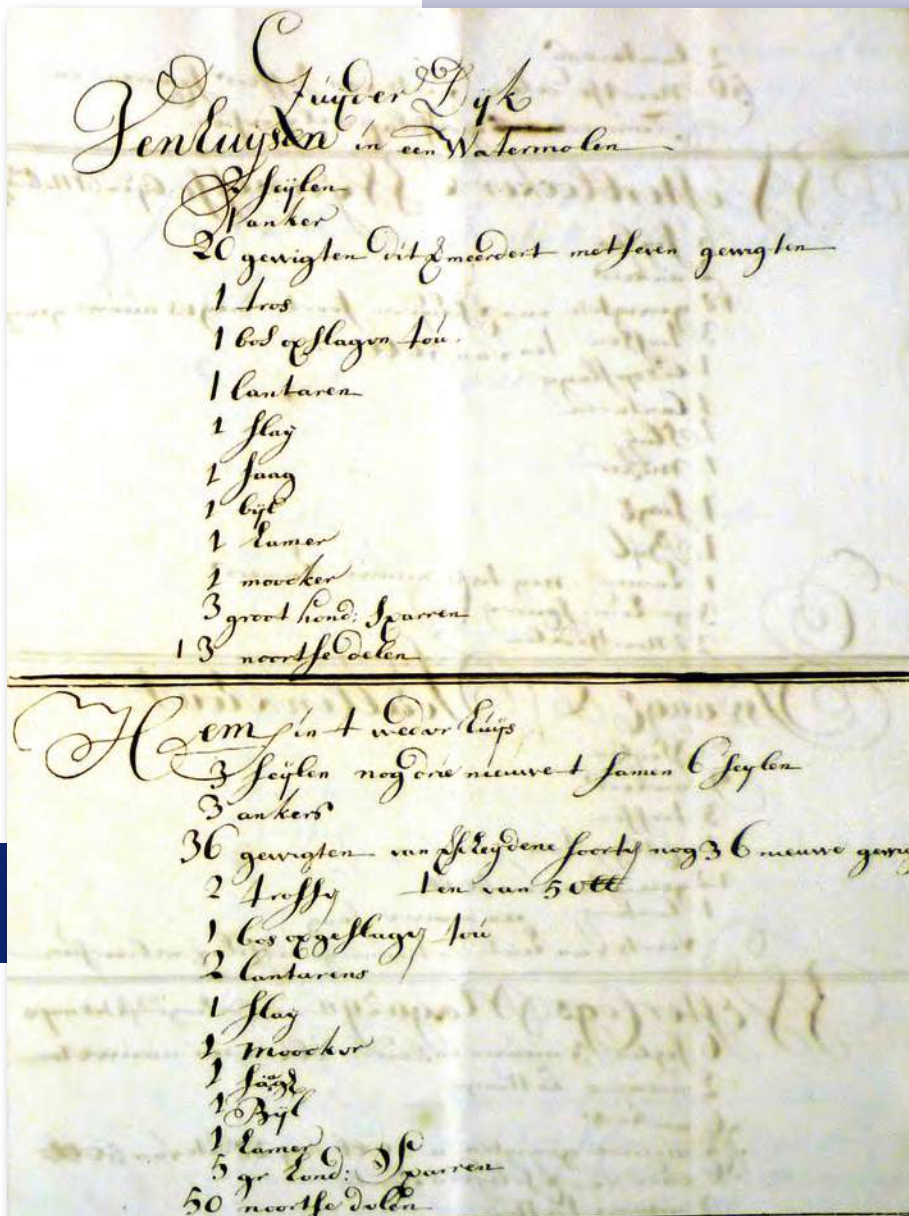 Zuyder Dyk
Venhuysen in een Watermolen
3 seylen
1 anker
20 gewigten dit vermeerdert met seven gewigten
1 tros
1 bos opslagen tou
1 lantaren
1 slay
1 saag
1 byl
1 hamer
1 moocker
3 groot hond: sparren
13 noortse delen
Hem in t weder huys
3 seylen nog drie nieuwe t samen 6 seylen
3 ankers
36 gewigten van soorten nog 36 nieuwe gewig
2 trossen ten van 50
1 bos opgeslagen tou
2 lantarens
1 slay
1 moocker
1 saag
1 Byl
1 hamer
5 gr hond: Sparren
50 noortse delen